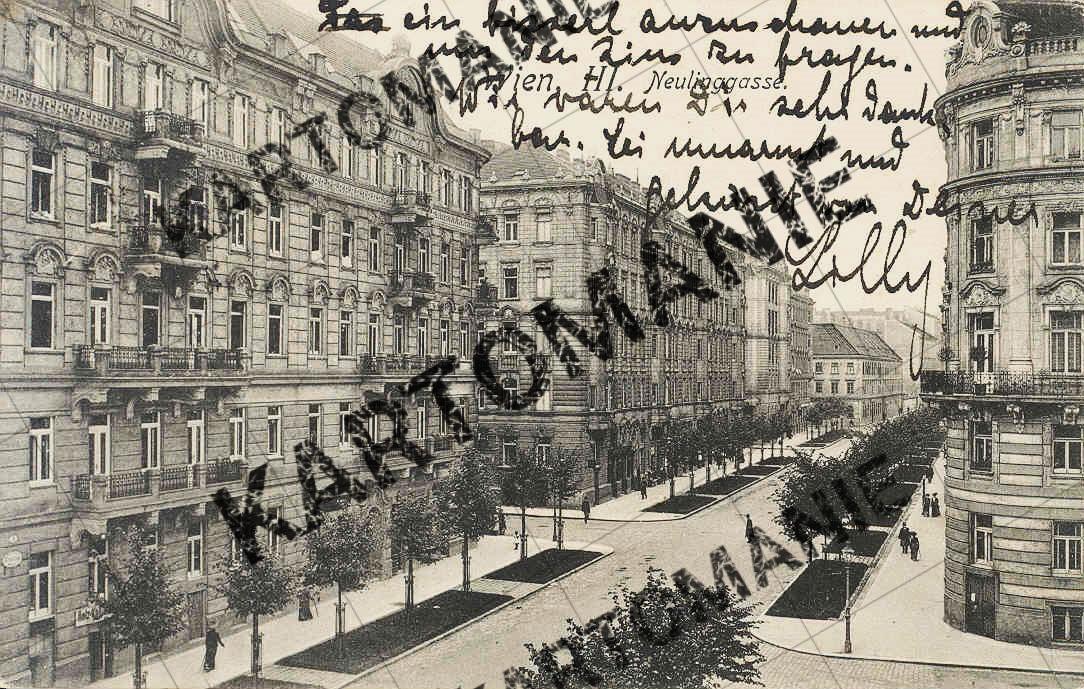 Das ein bisserl anzuschauen und
um den Zins zu fragen.
Wien, III. Neulinggasse.
Wir wären Dir sehr dank
bar. Sei umarmt und
geküsst von Deiner
Lolly
KARTOMANIE
KARTOMANIE
KARTOMANIE
KARTOMANIE
KARTOMANIE